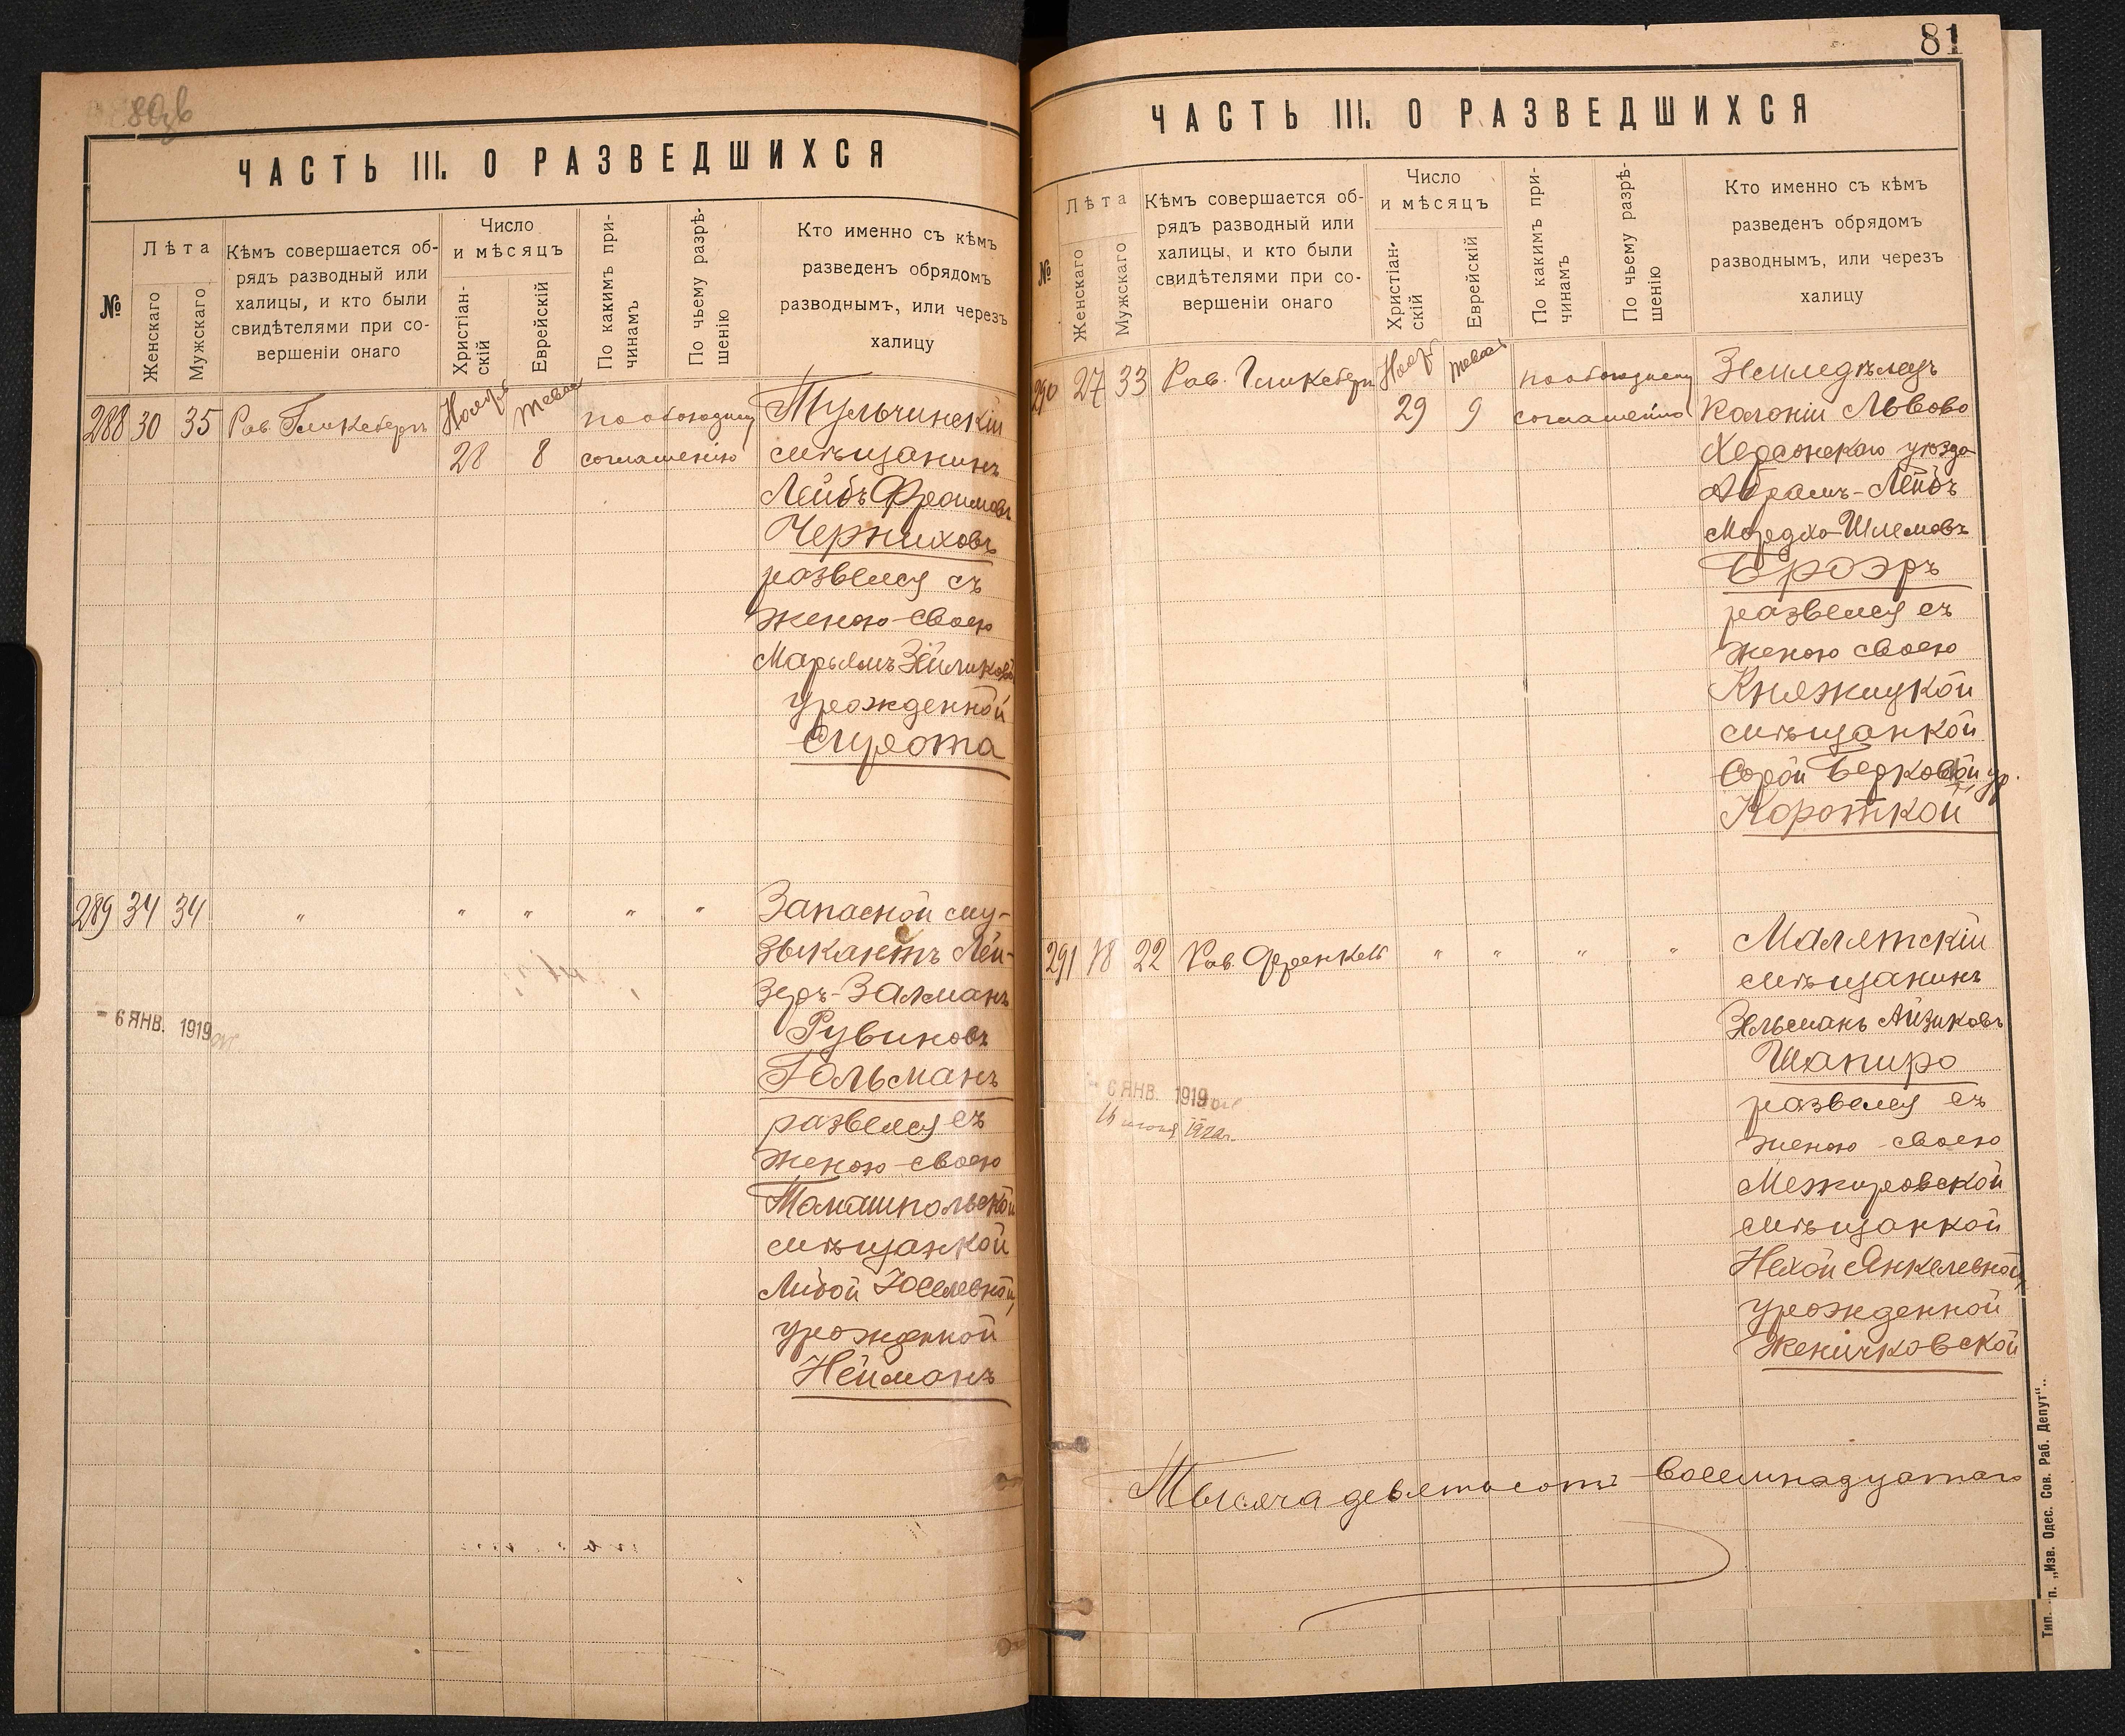 80зв
ЧАСТЬ III. О РАЗВЕДШИХСЯ
№
Лѣта
Женскаго
Мужскаго
Кѣмъ совершается об-
рядъ разводный или
халицы, и кто были
свидѣтелями при со-
вершеніи онаго
Число
и мѣсяцъ
Христіан-
скій
Еврейскій
По какимъ при-
чинамъ
По чьему разрѣ-
шенію
Кто именно съ кѣмъ
разведенъ обрядомъ
разводнымъ, или черезъ
халицу
288 30 35 Рав. Гликсбергъ Ноябрь 28 8 по обоюдному соглашенію
Тульчинскій
мѣщанинъ
Лейбъ Фроимовъ
Черниховъ
развелся съ
женою своею
Марьямъ Зейликовой
урожденной
Сирота
289 34 34 " " " " "
Запасной му-
зыкантъ Лей-
зеръ-Залманъ
Рувиновъ
Гольманъ
развелся съ
женою своею
Томашпольской
мѣщанкой
Либой Іоселевной,
урожденной
Нейманъ
- 6 ЯНВ. 1919
81
ЧАСТЬ III. О РАЗВЕДШИХСЯ
№
Лѣта
Женскаго
Мужскаго
Кѣмъ совершается об-
рядъ разводный или
халицы, и кто были
свидѣтелями при со-
вершеніи онаго
Число
и мѣсяцъ
Христіан-
скій
Еврейскій
По какимъ при-
чинамъ
По чьему разрѣ-
шенію
Кто именно съ кѣмъ
разведенъ обрядомъ
разводнымъ, или черезъ
халицу
290 27 33 Рав. Гликсбергъ Ноябрь 29 9 по обоюдному соглашенію
Земледѣлецъ
Колоніи Львово
Херсонскаго уѣзда
Абрамъ-Лейбъ
Мордко-Шлемовъ
Броэръ
развелся съ
женою своею
Княжицкой
мѣщанкой
Сорой Берковой ур.
Короткой
291 18 22 Рав. Френкель " " " "
Малятскій
мѣщанинъ
Зельманъ Айзиковъ
Шапиро
развелся съ
женою своею
Межировской
мѣщанкой
Нехой Янкелевной,
урожденной
Женичковской
- 6 ЯНВ. 1919
Тысяча девятьсотъ восемнадцатаго
Тип. п. „Изв. Одес. Сов. Раб. Депут"..